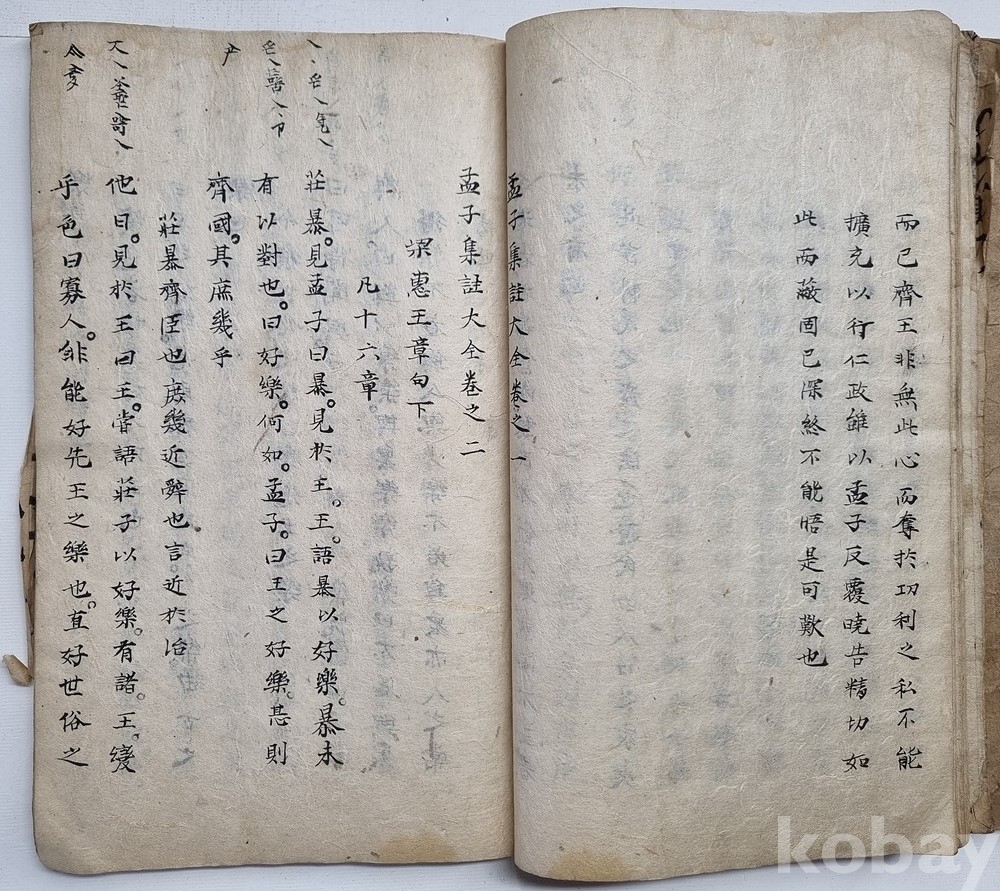 而已齊王非無此心而奪扵功利之私不能
擴充以行仁政雖以孟子反覆曉告精切如
此而蔽固已深終不能悟是可歎也
孟子集註大全卷之一
孟子集註大全卷之二
梁惠王章句下
凡十六章。
莊暴。見孟子曰暴。見扵王。王。語暴以好樂。暴未
有以對也。曰好樂。何如。孟子。曰王之好樂。甚則
齊國。其庶幾乎
莊暴齊臣也庶幾近辭也言近扵治
他日。見扵王曰王。嘗語莊子以好樂。有諸。王。變
乎色曰寡人。非能好先王之樂也。直好世俗之
kobay